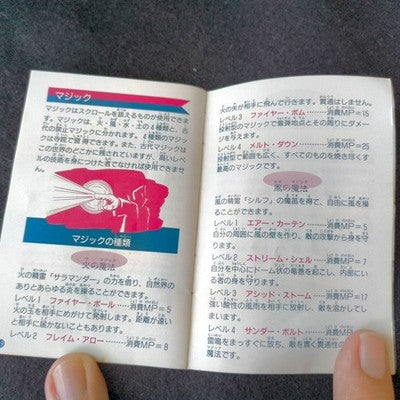 マジック
マジックはスクロールを扱えるものが使用できま
す。マジックは、火・風・水・土の4種類と、古
代の禁止マジックに分かれます。4種類のマジッ
クは寺院で譲り渡されます。また、古代マジックは
この世界のどこかに残されていますが、高いレベ
ルの技術を身につけた者でなければ使用できませ
ん。
マジックの種類
火の魔法
火の精霊「サラマンダー」の力を借り、自然界の
ありとあらゆる炎を操ることができます。
レベル1 ファイヤー・ボール……消費MP=5
火の玉を相手にめがけて発射します。距離が遠い
と相手に届かないこともあります。
レベル2 フレイム・アロー……消費MP=8
火の矢が相手に飛んで行きます。貫通はしません。
レベル3 ファイヤー・ボム……消費MP=15
投射型のマジックで着弾地点とその周りにダメー
ジを与えます。
レベル4 メルト・ダウン……消費MP=25
投射型で範囲も広く、すべてのものを焼き尽くす
最高のマジックです。
風の魔法
風の精霊「シルフ」の魔笛を得て、自由に風を操
ることができます。
レベル1 エアー・カーテン……消費MP=5
自分の周囲に風の壁を作り、敵の攻撃から身を守
ります。
レベル2 ストリーム・シェル……消費MP=7
自分を中心にドーム状の竜巻を起こし、内部にい
る者の身を守ります。
レベル3 アシッド・ストーム……消費MP=17
強い酸性の風雨を相手に放射し、敵を溶かしてし
まいます。
レベル4 サンダー・ボルト……消費MP=
雷鳴をまっすぐに放ち、敵を貫く貫通性の
魔法です。